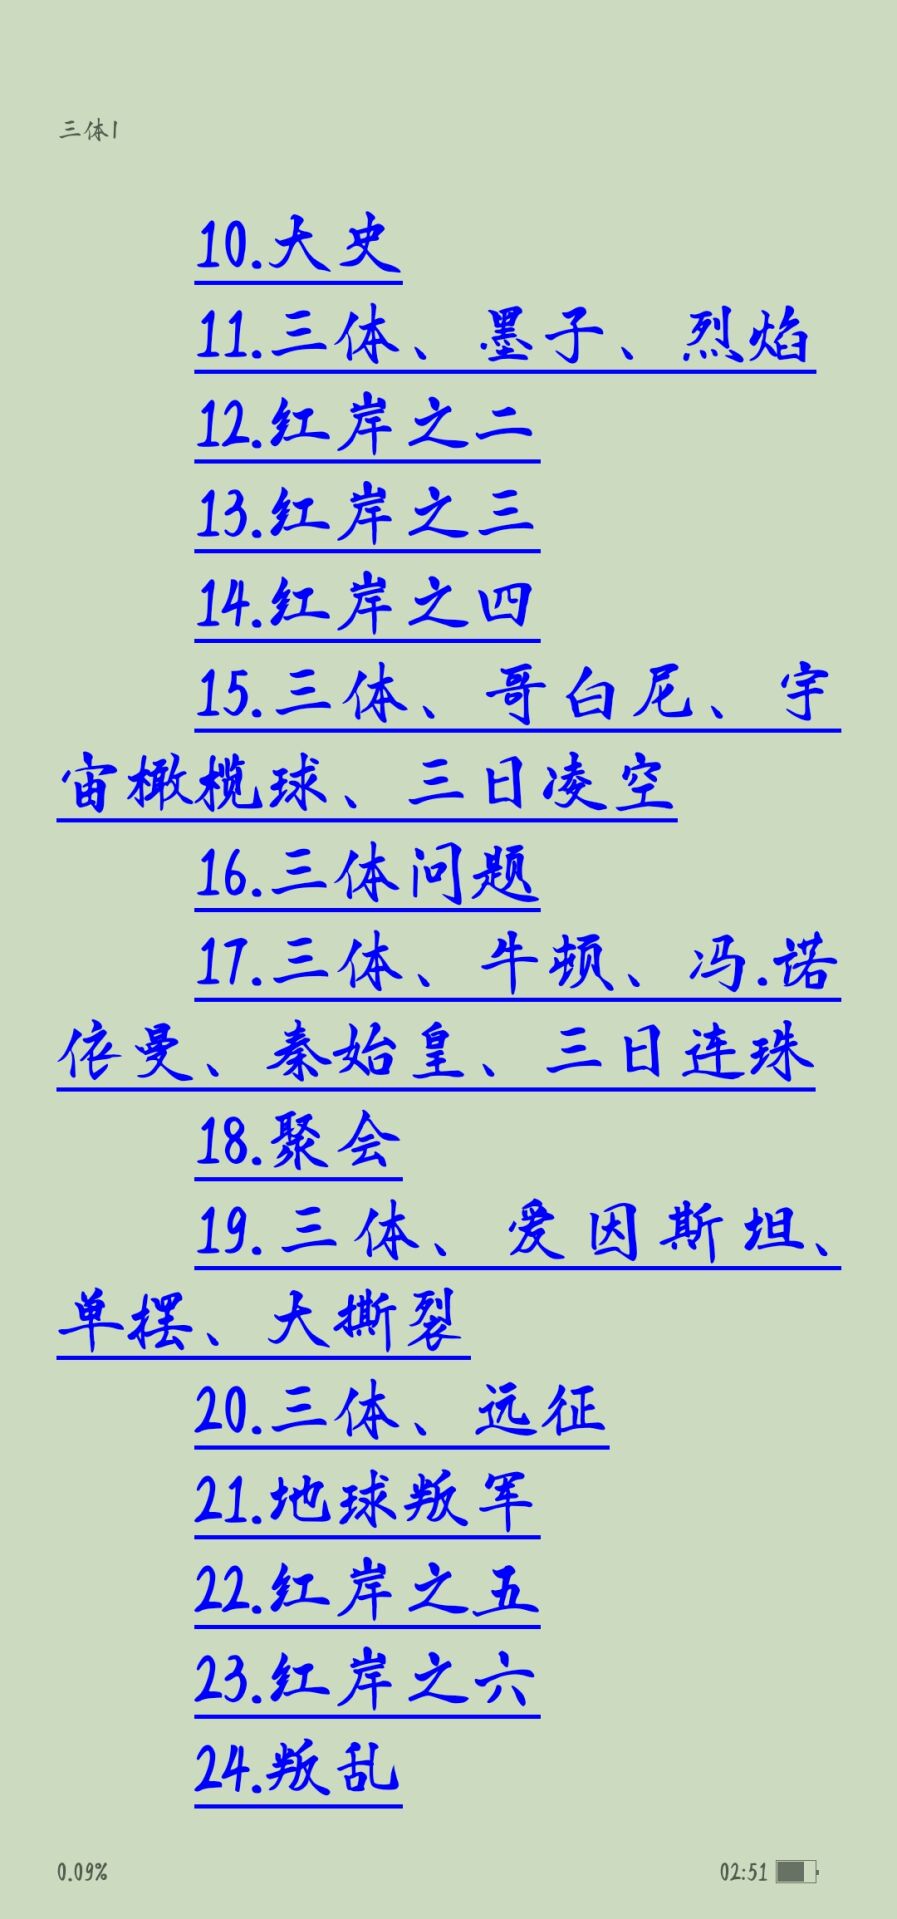 三体1
10.大史
11.三体、墨子、烈焰
12.红岸之二
13.红岸之三
14.红岸之四
15.三体、哥白尼、宇
宙橄榄球、三日凌空
16.三体问题
17.三体、牛顿、冯.诺
依曼、秦始皇、三日连珠
18.聚会
19.三体、爱因斯坦、
单摆、大撕裂
20.三体、远征
21.地球叛军
22.红岸之五
23.红岸之六
24.叛乱
0.09%
02:51